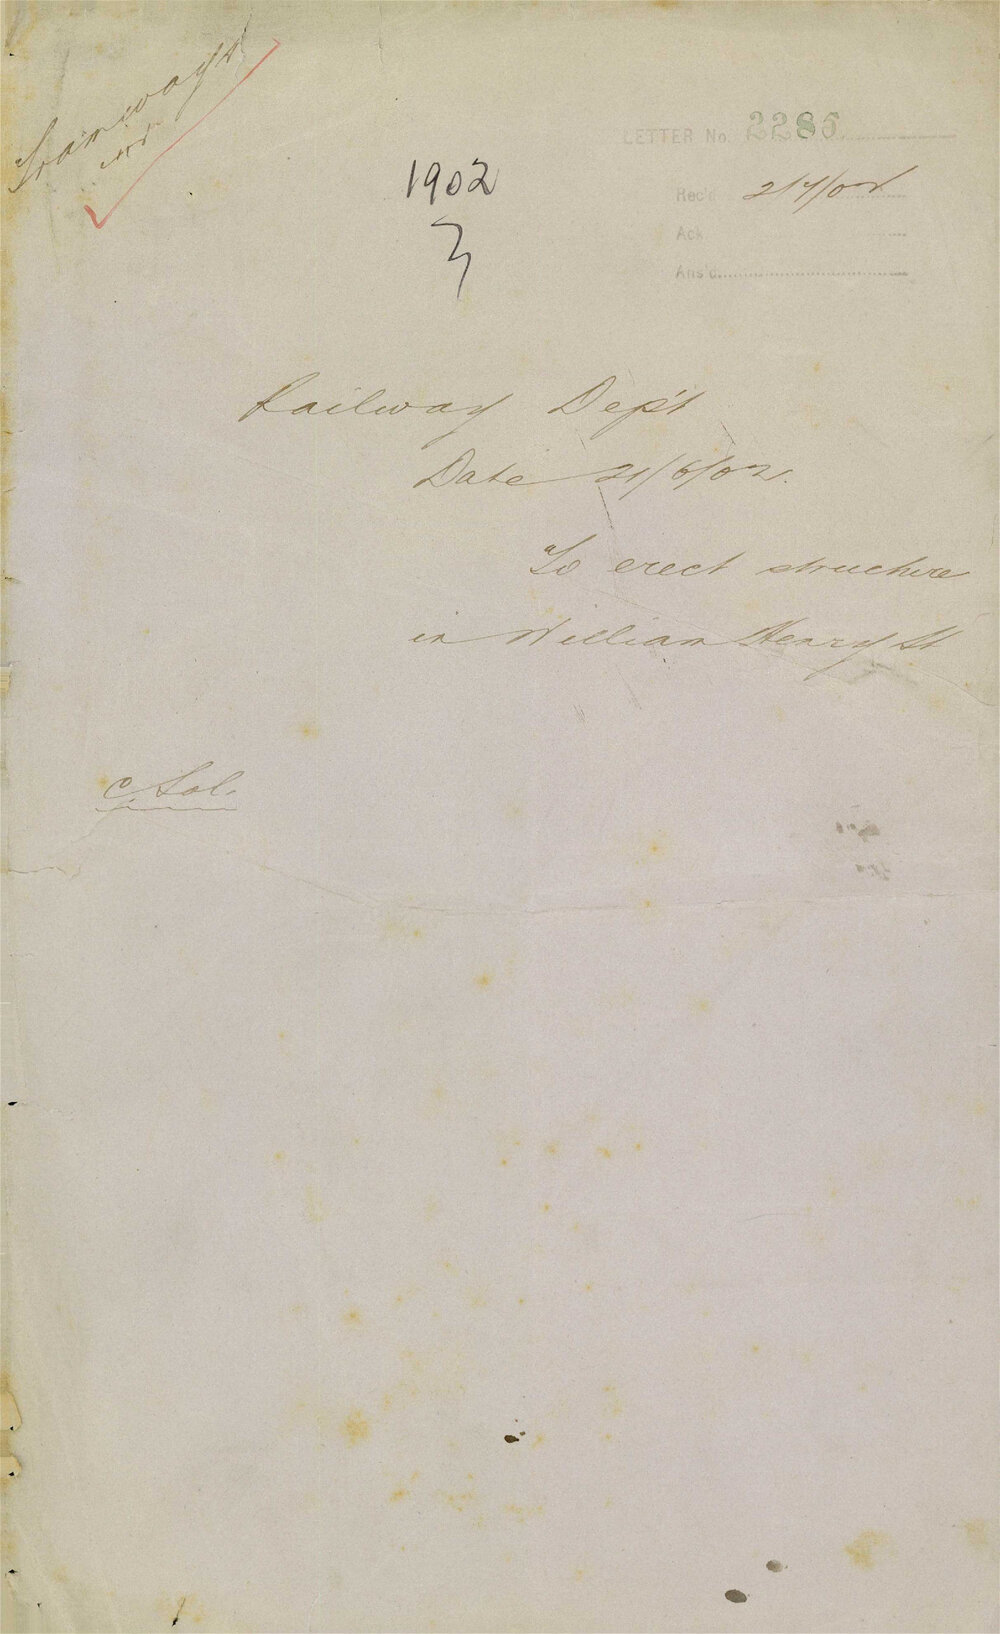 Tramways
LETTER No. 2285
1902
Rec'd 2/7/02
Ack
Ans'd
Railway Dep't
Date 21/6/02.
To erect structure
in William Henry St
C Sol.